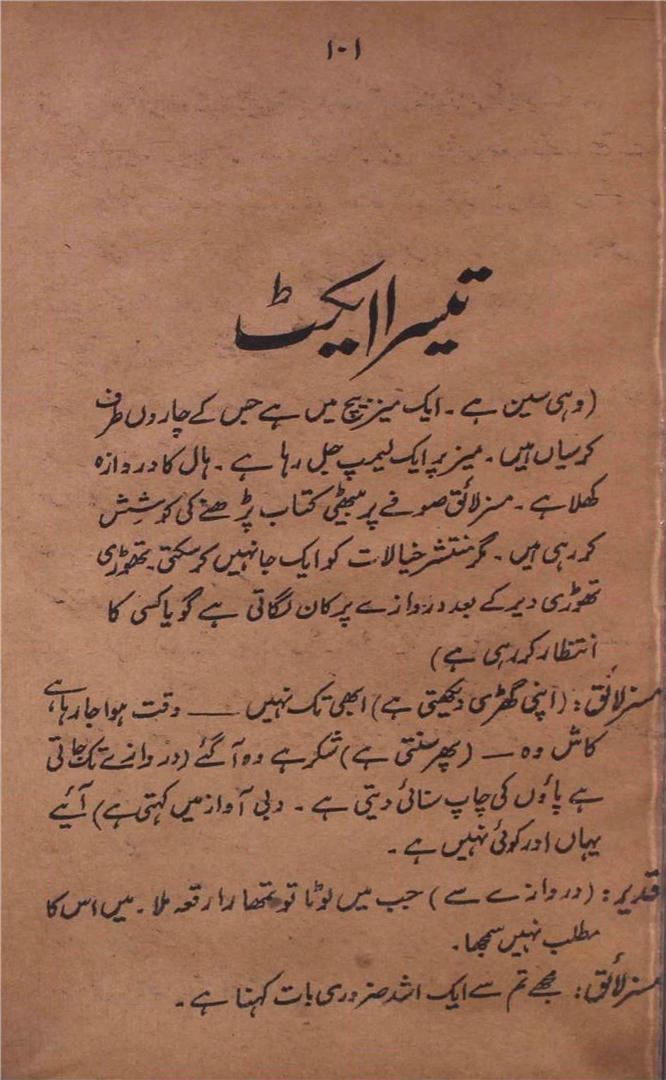 ۱۰۱
تیسرا ایکٹ
(وہی سین ہے۔ ایک میز بیچ میں ہے جس کے چاروں طرف
کرسیاں ہیں۔ میز پر ایک لیمپ جل رہا ہے۔ ہال کا دروازہ
کھلا ہے۔ مسز لائق صوفے پر بیٹھی کتاب پڑھنے کی کوشش
کر رہی ہیں۔ مگر منتشر خیالات کو ایک جا نہیں کر سکتی۔ تھوڑی
تھوڑی دیر کے بعد دروازے پر کان لگاتی ہے گویا کسی کا
انتظار کر رہی ہے)
مسز لائق: (اپنی گھڑی دیکھتی ہے) ابھی تک نہیں ــــ وقت ہوا جا رہا ہے،
کاش وہ ــ (پھر سنتی ہے) شکر ہے وہ آ گئے (دروازے تک جاتی
ہے پاؤں کی چاپ سنائی دیتی ہے۔ دبی آواز میں کہتی ہے) آئیے
یہاں اور کوئی نہیں ہے۔
قدیر: (دروازے سے) جب میں لوٹا تو تمھارا رقعہ ملا۔ میں اس کا
مطلب نہیں سمجھا۔
مسز لائق: مجھے تم سے ایک اشد ضروری بات کہنا ہے۔